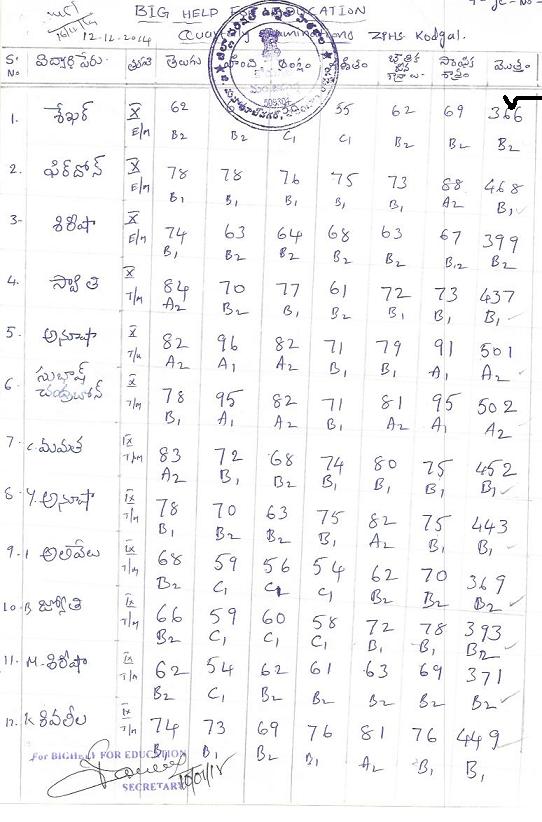 BIG HELP EDUCATION
12-12-2014 Quarterly Examinations ZPHS Kodgal.
S. No విద్యార్థి పేరు తెలుగు హింది ఇంగ్లీషం గణితం మొత్తం
1. శేఖర్ X 62 55 62 69 366
E/M B2 B2 C1 B2 B2 B2
2. ఫిర్దోస్ X 78 78 76 75 73 88 468
E/M B1 B1 B1 B1 B1 A2 B1
3. శిరీషా X 74 63 64 68 63 67 399
E/M B1 B2 B2 B2 B2 B2 B2
4. స్వాతి X 84 70 77 61 72 73 437
T/M A2 B2 B1 B2 B1 B1 B1
5. అనూషా X 82 96 82 71 79 91 501
T/M A2 A1 A2 B1 B1 A1 A2
6. సుభాష్ చంద్రబోస్ X 78 95 82 71 81 95 502
T/M B1 A1 A2 B1 A2 A1 A2
7. C. మమత IX 83 72 68 74 80 75 452
T/M A2 B1 B2 B1 B1 B1 B1
8. Y. అనూషా IX 78 70 63 75 82 75 443
T/M B1 B2 B2 B1 A2 B1 B1
9. అలివేలు IX 68 59 56 54 62 70 369
T/M B2 C1 C1 B2 B2 B2
10. B జ్యోతి IX 66 59 60 58 72 78 393
T/M B2 C1 C1 C1 B1 B1 B2
11. M. శిరీషా IX 62 54 62 61 63 69 371
T/M B2 C1 B2 B2 B2 B2 B2
12. K శివలీల IX 74 73 69 76 81 76 449
T/M B1 B1 B2 B1 A2 B1 B1
For BIG HELP FOR EDUCATION
SECRETARY